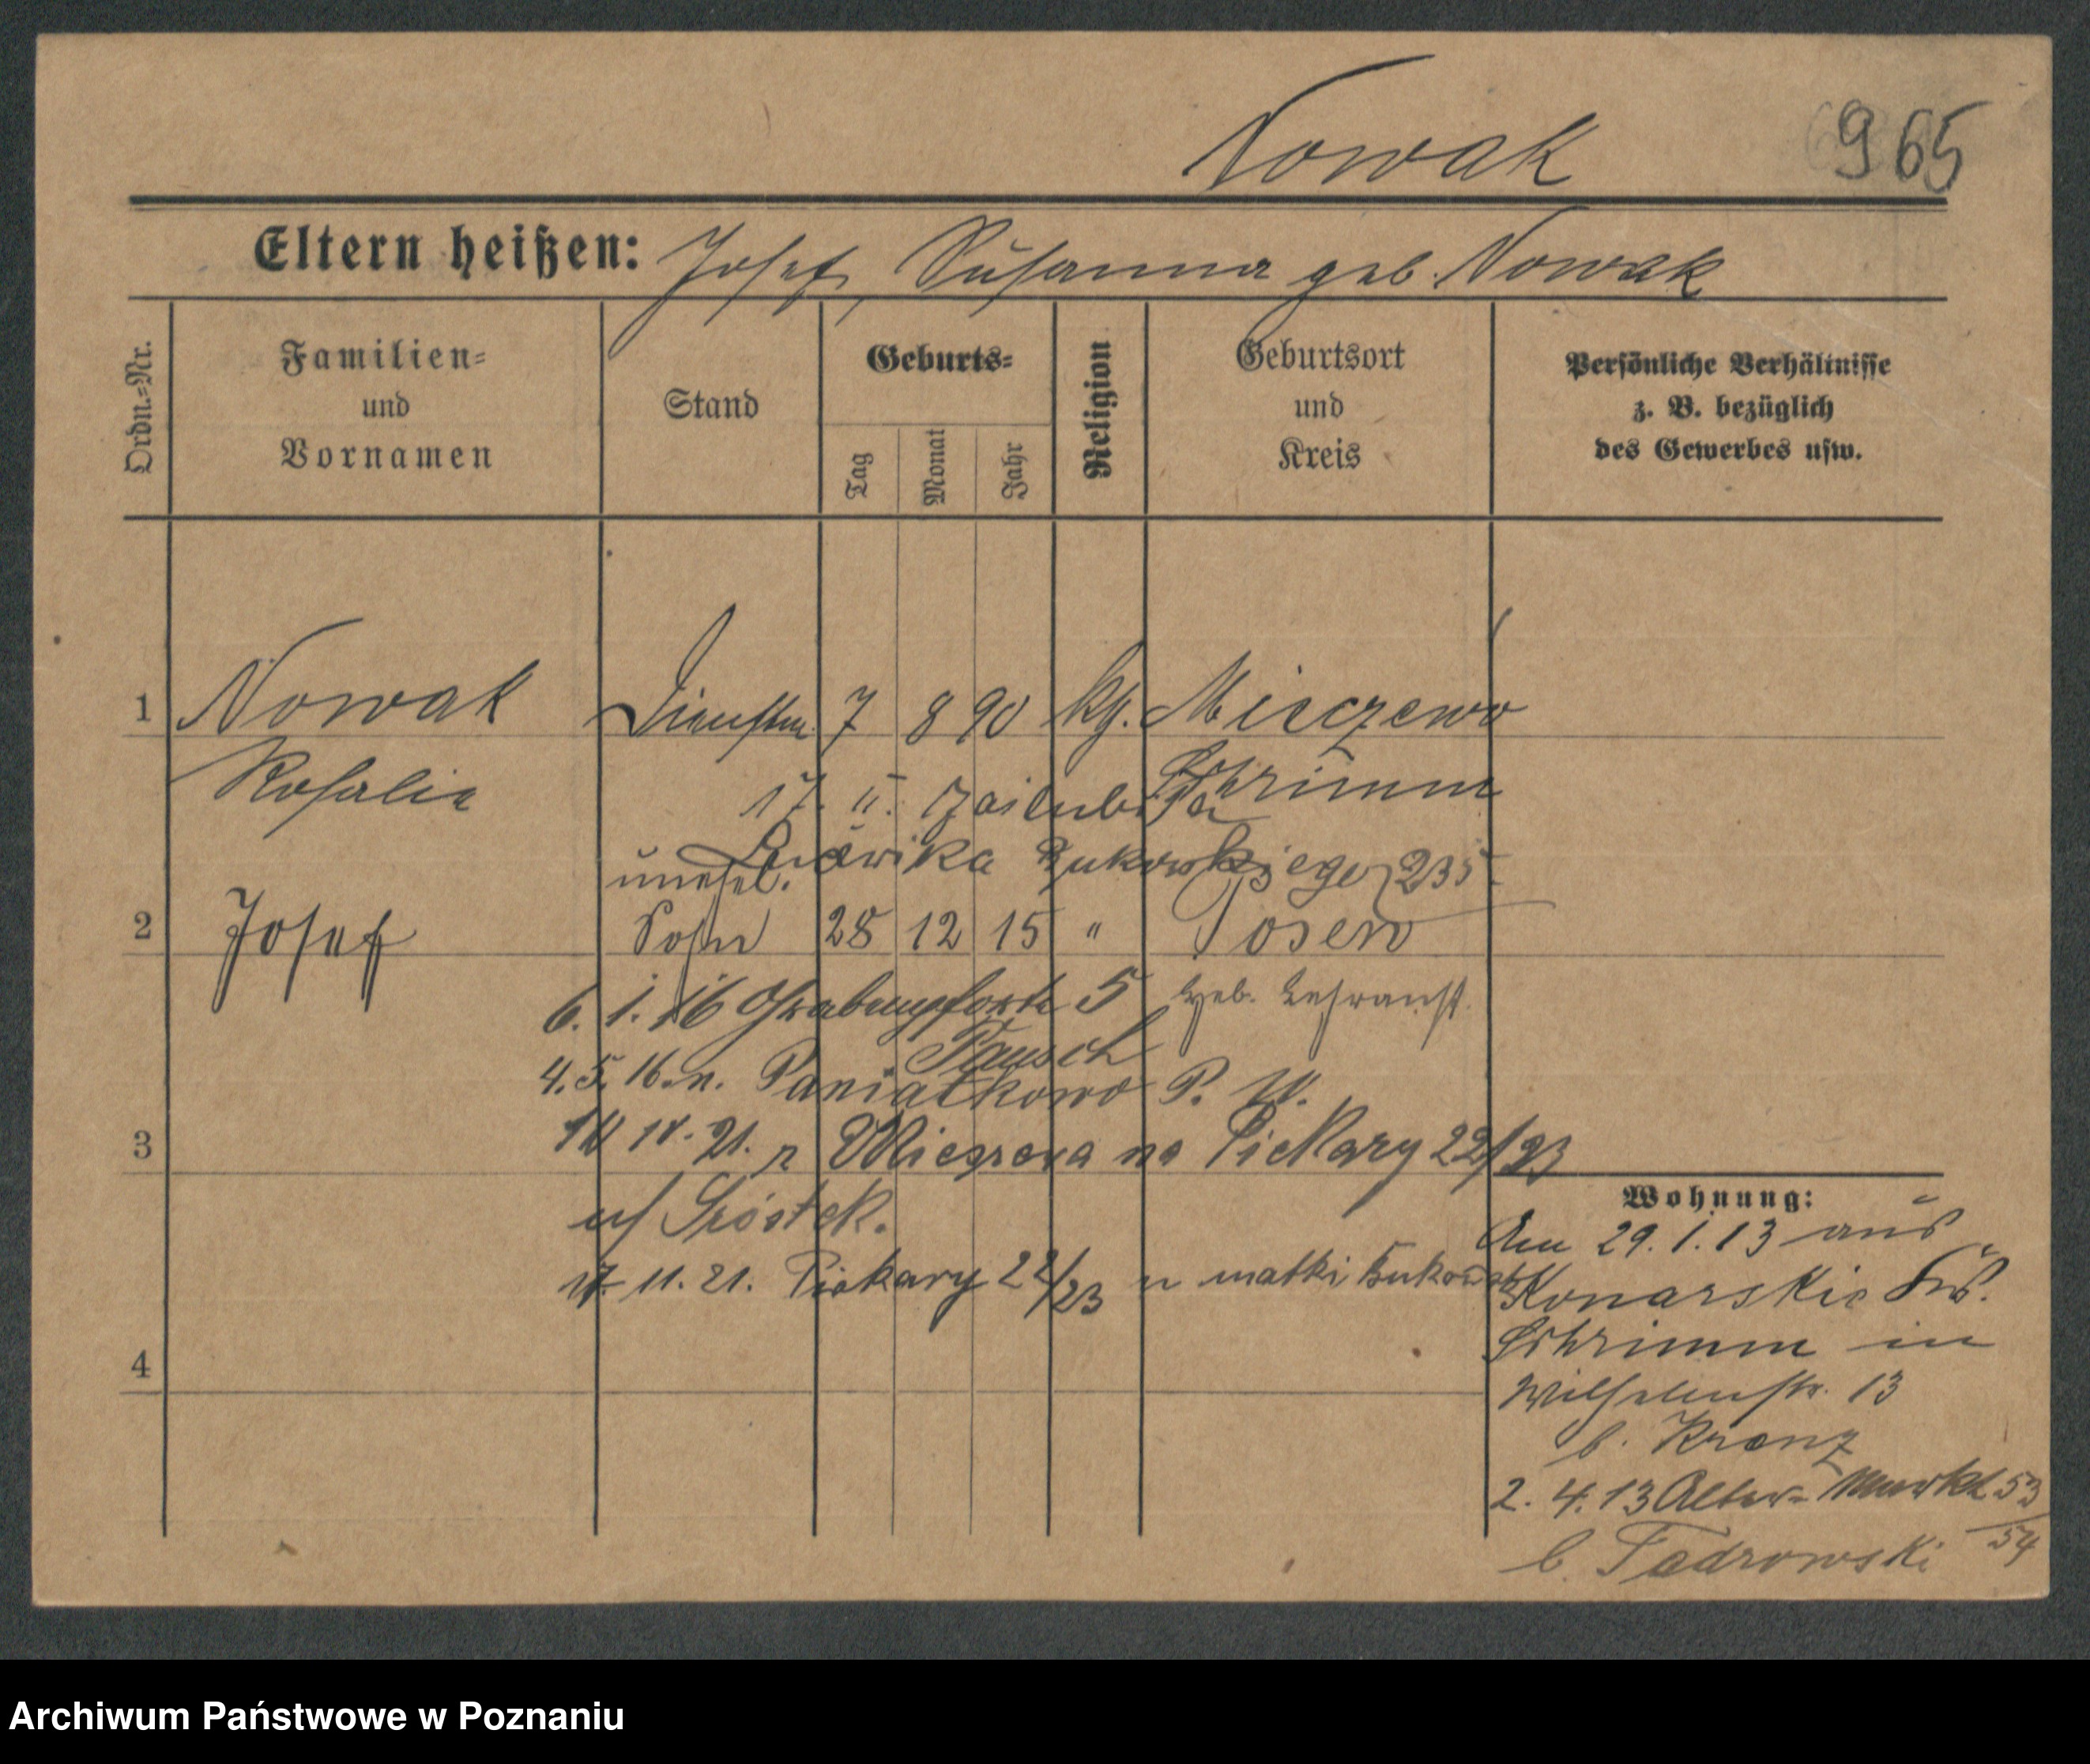 Nowak 965
Eltern heißen: Josef, Susanna geb. Nowak
Ordn.=Nr.
Familien=
und
Vornamen
Stand
Geburts=
Tag
Monat
Jahr
Religion
Geburtsort
und
Kreis
Persönliche Verhältnisse
z. B. bezüglich
des Gewerbes usw.
1 Nowak Dienstm. 7 8 90 kg. Mieczewo
Rosalie Schrimm
17. II. zaślubiła
Ludwika Bukowskiego 235
unehel.
2 Josef Sohn 28 12 15 " Posen
6. 1. 16 Grabenpforte 5 Heb. Lehranst.
Pausch
4. 5. 16. n. Paniatkowo P. W.
3
21. z Mieczewa na Piekary 22/23
u/ Szóstek.
17. 11. 21. Piekary 22/23 u matki Bukowsk
4
Wohnung:
Am 29. 1. 13 aus
Konarskie Krs.
Schrimm in
Wilhelmstr. 13
b. Kranz
2. 4. 13 Alter Markt 53/54
b. Tadrowski
Archiwum Państwowe w Poznaniu